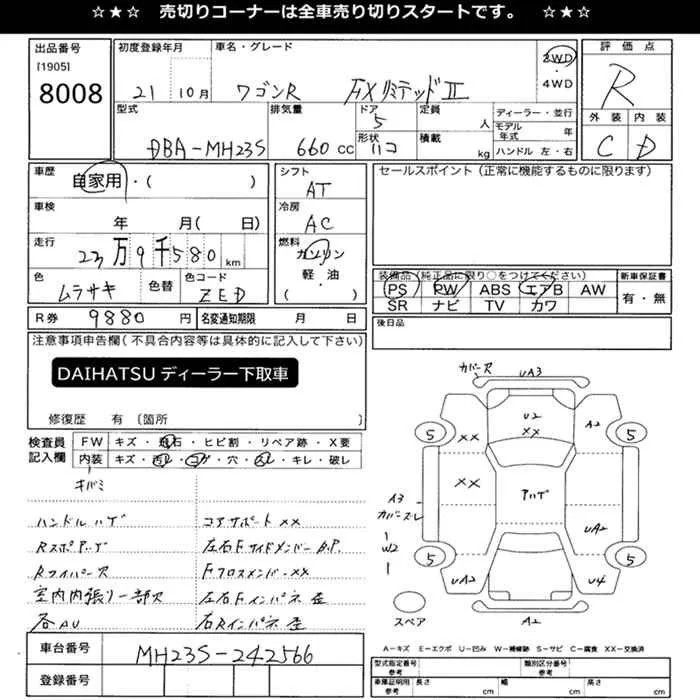 ☆★☆ 売切りコーナーは全車売り切りスタートです。 ☆★☆
出品番号
[1905]
8008
初度登録年月
21 10月
車名・グレード
ワゴンR FXリミテッドⅡ
2WD
・
4WD
評価点
R
外装 内装
C D
型式
DBA-MH23S
排気量
660 cc
ドア
5
形状
ハコ
定員
人
積載
kg
ディーラー・並行
モデル年式 年
ハンドル 左・右
車歴
自家用・( )
車検
年 月( 日)
走行
23万9千580 km
色
ムラサキ
色替
色コード
ZED
シフト
AT
冷房
AC
燃料
ガソリン
軽・油
( )
セールスポイント(正常に機能するものに限ります)
装備品(純正品に限り○をつけてください)
新車保証書
PS PW ABS エアB AW
SR ナビ TV カワ
有・無
R券 9880 円
名変通知期限 月 日
後日品
注意事項申告欄(不具合内容等は具体的に記入して下さい)
DAIHATSU ディーラー下取車
修復歴 有 〔箇所
検査員記入欄
FW キズ・飛石・ヒビ割・リペア跡・X要
内装 キズ・汚レ・コゲ・穴・スレ・キレ・破レ
キバミ
ハンドルハゲ
Rワイパー欠
室内内張り一部欠
各AU
コアサポートXX
左右FサイドメンバーB.P.
FクロスメンバーXX
左右Fインパネ歪
右Rインパネ歪
カバー欠
UA3
U2
XX
A2
5
5
XX
XX
アハゲ
A3
カバースレ
W2
UA2
5
5
UA2
U4
A2
スペア
A-キズ E-エクボ U-凹み W-補修跡 S-サビ C-腐食 XX-交換済
車台番号
MH23S-242566
登録番号
型式指定番号
参考
類別区分番号
参考
車庫証明用
参考
長さ cm
幅 cm
高さ cm